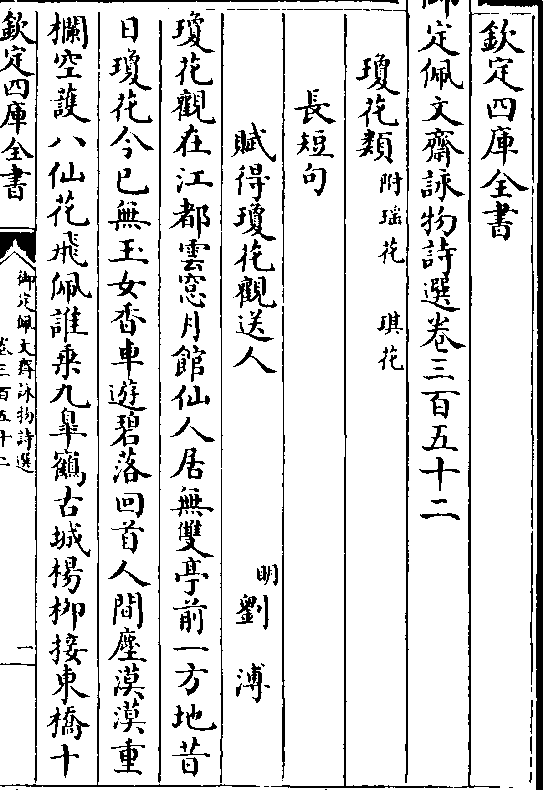 欽定四庫全書
御定佩文齋詠物詩選卷三百五十二
瓊花類附瑤花 琪花
長短句
賦得瓊花觀送人 明劉溥
瓊花觀在江都雲窓月館仙人居無雙亭前一方地昔
日瓊花今已無玉女香車遊碧落回首人間塵漠漠重
欄空護八仙花飛佩誰乘九臯鶴古城楊柳接東橋十
欽定四庫全書
御定佩文齋詠物詩選
卷三百五十二
一